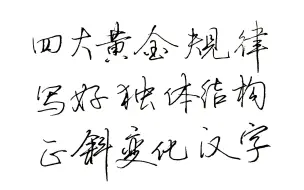 四大黄金规律
写好独体结构
正斜变化汉字